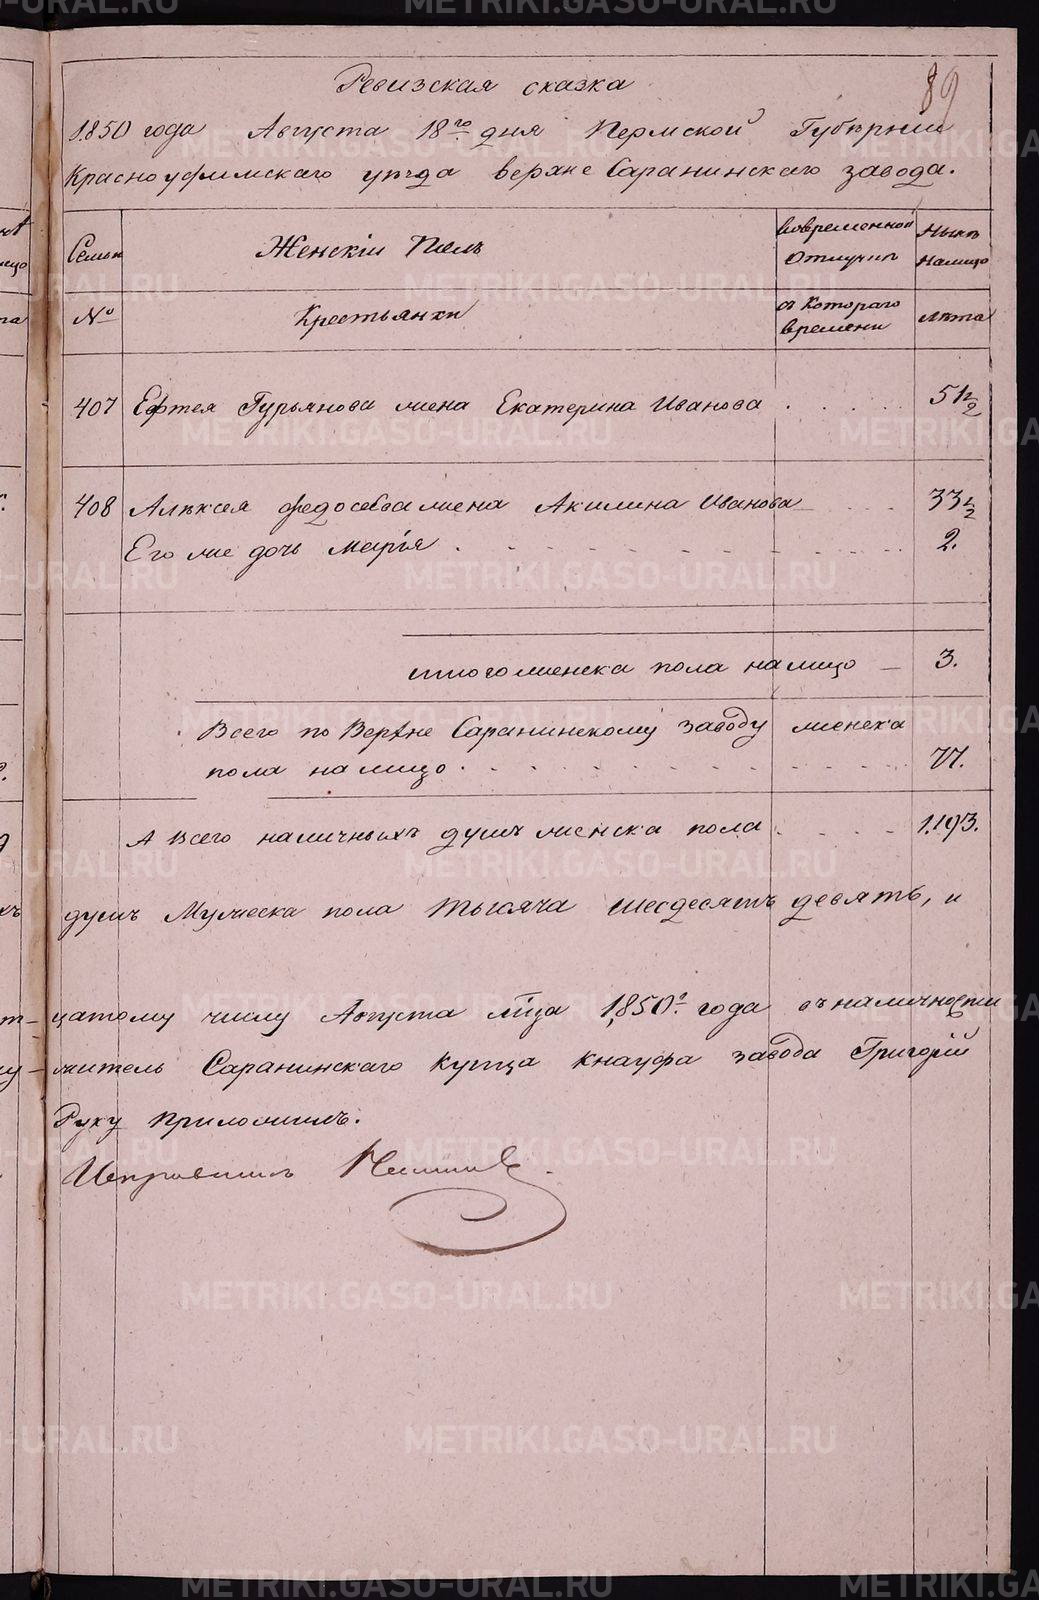 89
Ревизская сказка
1850 года Августа 18го дня Пермской Губѣрнии
Красноуфимскаго уѣзда верхне Саранинскаго завода.
Семьи
Женскій Полъ
вовременной отлучкѣ
Нынѣ налицо
№
Крестьянки
съ котораго времени
Лѣта
407 Ефтея Гурьянова жена Екатерина Иванова 51 1/2
408 Алѣксея федосеѣва жена Акилина Иванова 33 1/2
Его же дочь марія 2.
итого женска пола налицо — 3.
Всего по Верхне Саранинскому заводу женска
пола налицо 77.
А всего наличныхъ душъ женска пола 1.193.
душъ Мужеска пола тысяча шесдесятъ девять, и
цатому числу Августа мца 1,850г. года въ наличности
житель Саранинскаго купца кнауфа завода Григорій
Руку приложилъ.
Исправникъ
METRIKI.GASO-URAL.RU